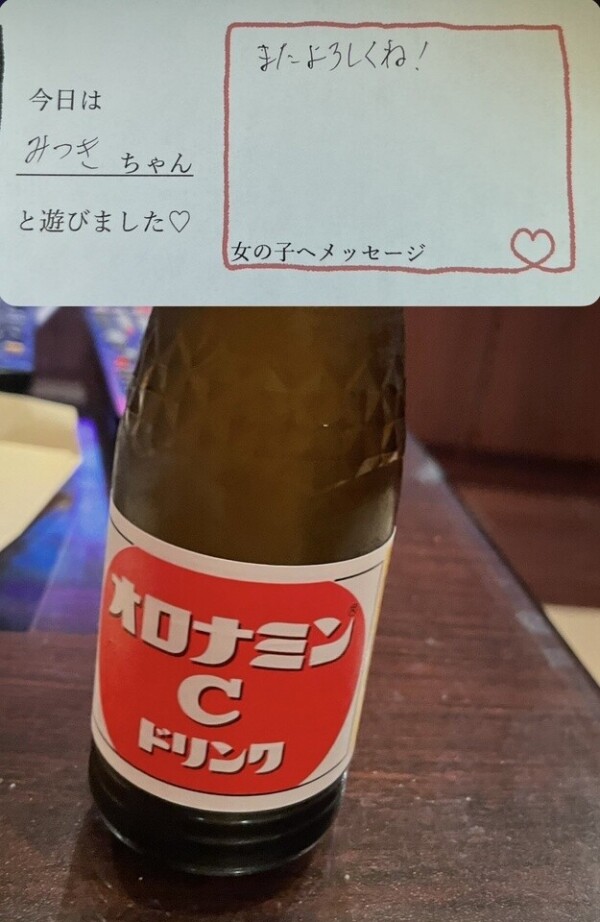 今日は
みつき ちゃん
と遊びました♡
またよろしくね!
女の子へメッセージ
オロナミン®
C
ドリンク